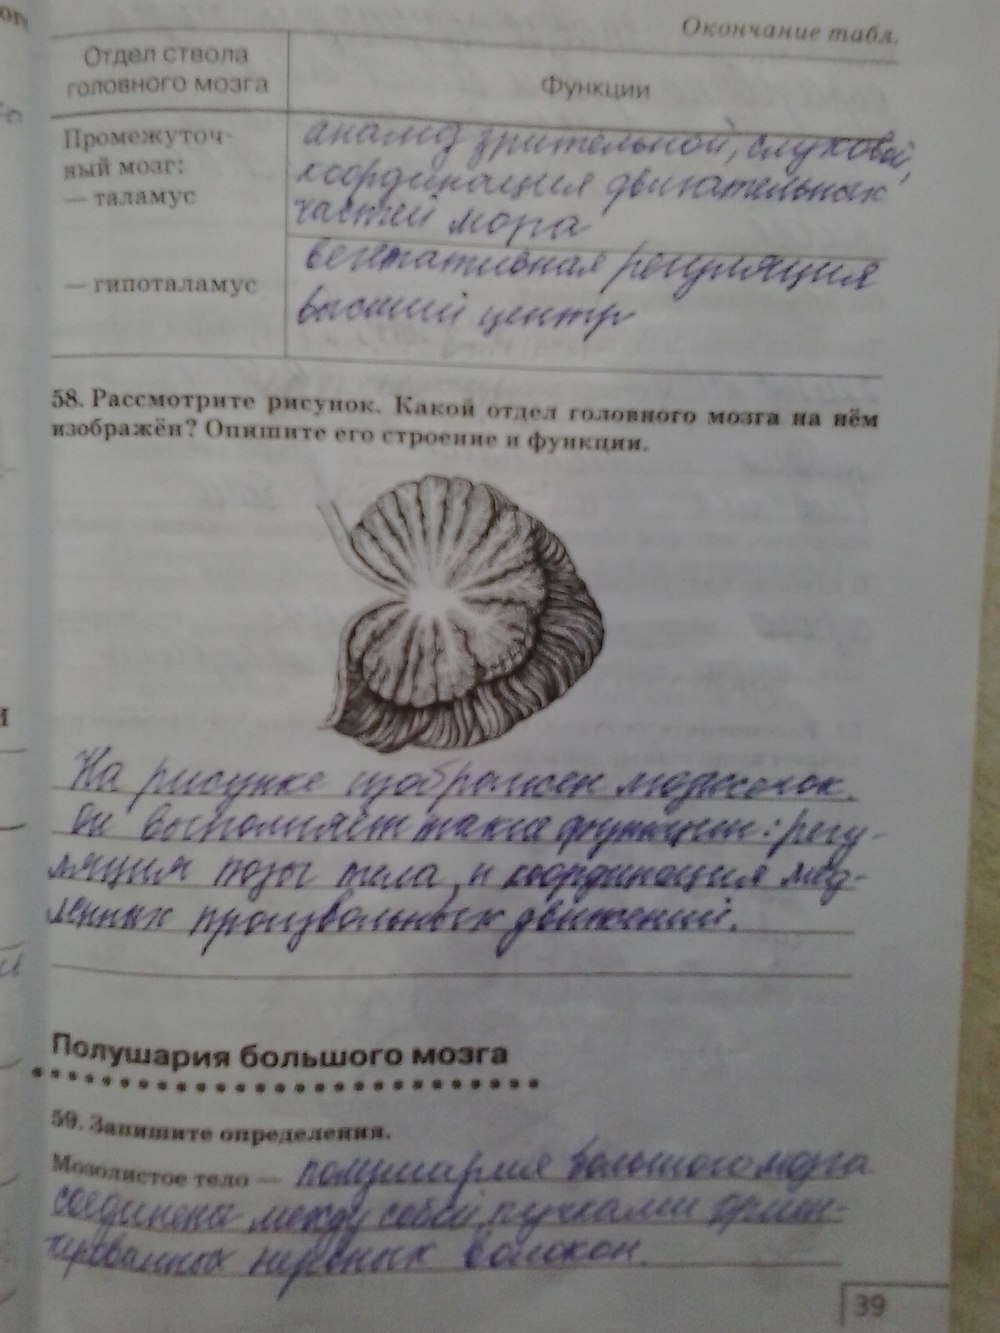 Окончание табл.
Отдел ствола
головного мозга
Функции
Промежуточ-
ный мозг:
— таламус
анализ зрительной, слуховой,
координация двигательных
частей мозга
— гипоталамус
вегетативная регуляция
высший центр
58. Рассмотрите рисунок. Какой отдел головного мозга на нём
изображён? Опишите его строение и функции.
На рисунке изображен мозжечок.
Он выполняет такие функции: регу-
ляция позы тела и координация мед-
ленных произвольных движений.
Полушария большого мозга
59. Запишите определения.
Мозолистое тело — полушария большого мозга
соединены между собой пучками
нервных волокон.
39